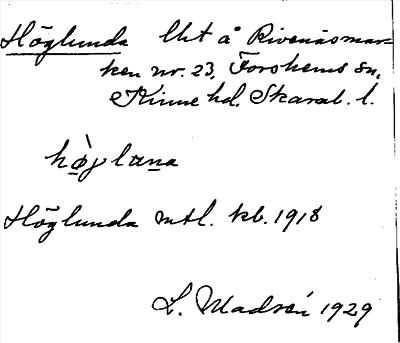 Höglunda lht å Rivenäsmar-
ken nr. 23, Forshems sn,
Kinne hd. Skarab. l.
hø̀glana
Höglunda mtl. kb. 1918
L. Madsén 1929